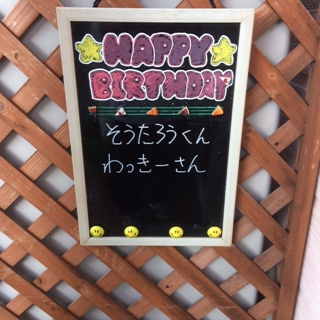 HAPPY
BIRTHDAY
そうたろうくん
わっきーさん